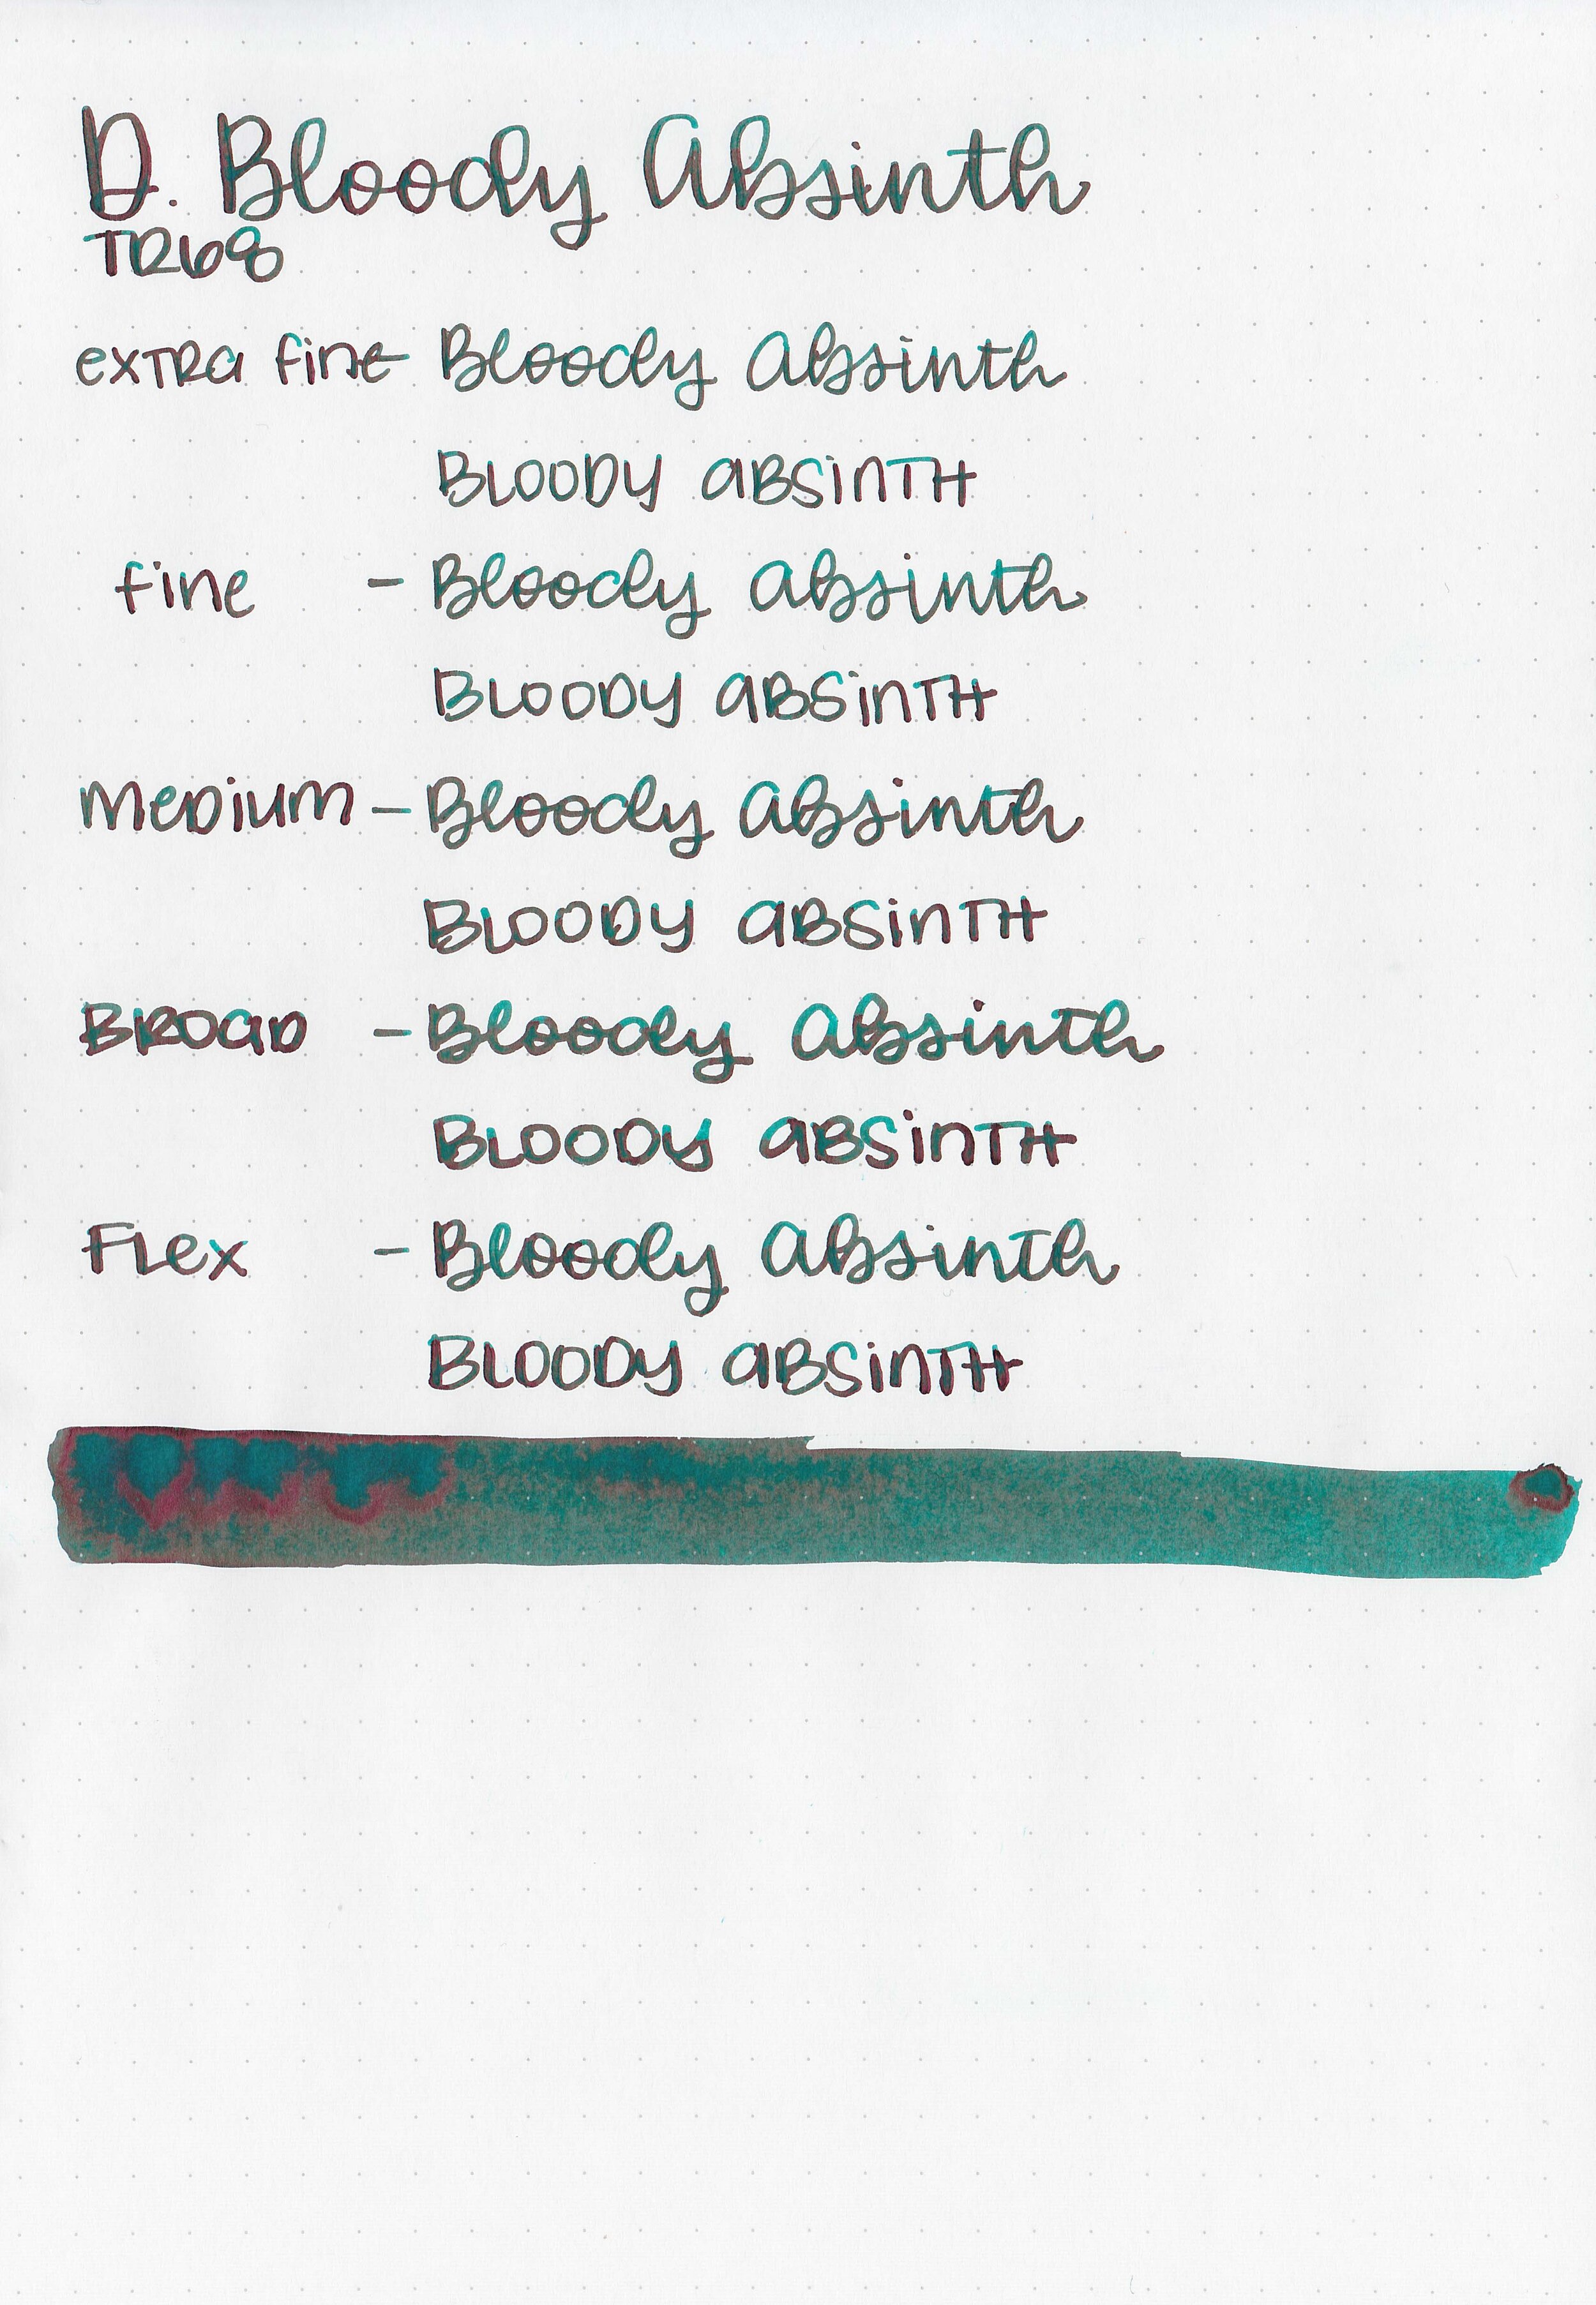 D. Bloody Absinth
TR68
extra fine - Bloody Absinth
BLOODY ABSINTH
fine - Bloody Absinth
BLOODY ABSINTH
MEDIUM - Bloody Absinth
BLOODY ABSINTH
BROAD - Bloody Absinth
BLOODY ABSINTH
FLEX - Bloody Absinth
BLOODY ABSINTH